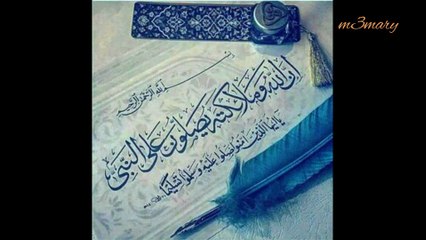 m3mary
بسم الله الرحمن الرحيم
إن الله وملائكته يصلون على النبي
يا أيها الذين آمنوا صلوا عليه وسلموا تسليما